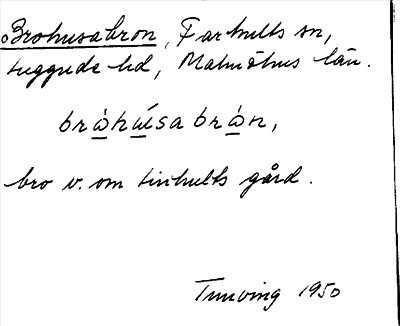 Brohusabron, Farhults sn,
Luggude hd, Malmöhus län.
bròhu̍sabròn,
bro v. om Linhults gård.
Tunving 1950